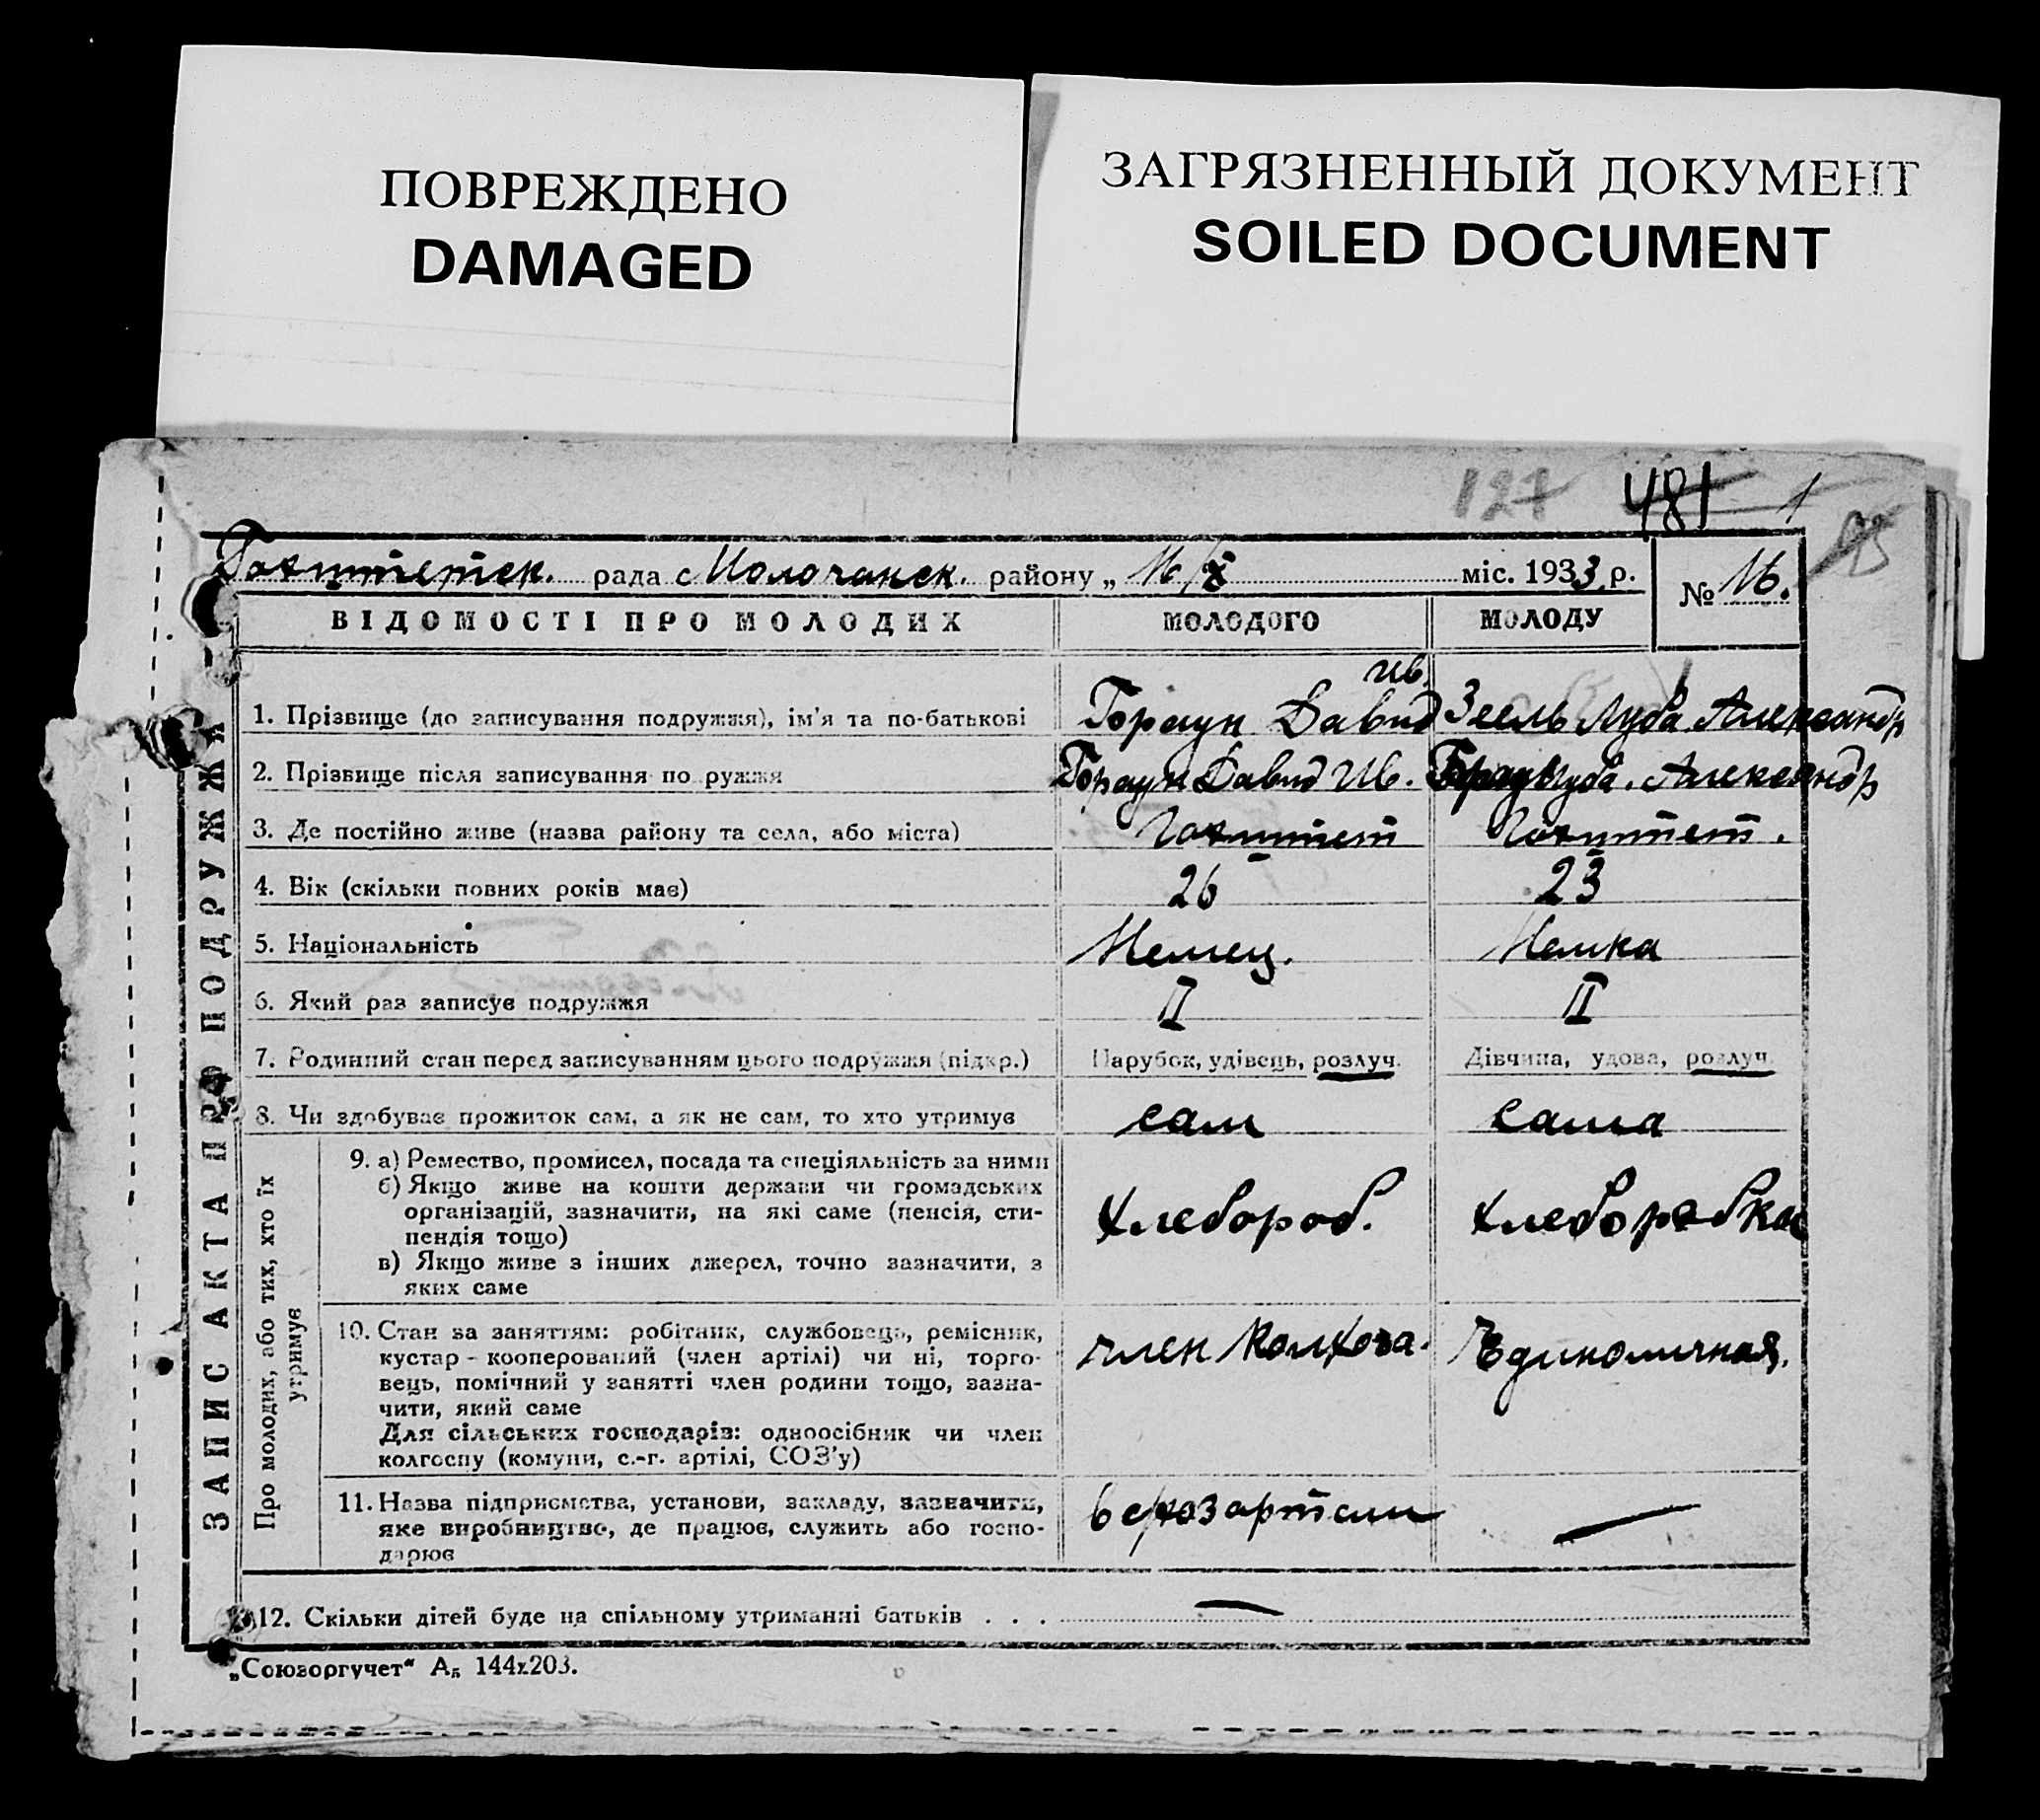 ПОВРЕЖДЕНО
DAMAGED
ЗАГРЯЗНЕННЫЙ ДОКУМЕНТ
SOILED DOCUMENT
127 481 1
95
Гохштетск. рада с Молочанск. району „ 16/X міс. 1933 р. № 16.
ЗАПИС АКТА ПРО ПОДРУЖЖЯ
ВІДОМОСТІ ПРО МОЛОДИХ МОЛОДОГО МОЛОДУ
Ив.
1. Прізвище (до записування подружжя), ім'я та по-батькові Браун Давид Зеель Луба Александр
2. Прізвище після записування по ружжя Браун Давид Ив. Браун Луба. Александр
3. Де постійно живе (назва району та села, або міста) Гохштет Гохштет.
4. Вік (скільки повних років має) 26 23
5. Національність Немец. Немка
6. Який раз записує подружжя II II
7. Родинний стан перед записуванням цього подружжя (підкр.) Парубок, удівець, розлуч. Дівчина, удова, розлуч.
8. Чи здобуває прожиток сам, а як не сам, то хто утримує сам сама
Про молодих, або тих, хто їх утримує
9. а) Ремество, промисел, посада та спеціяльність за ними
б) Якщо живе на кошти держави чи громадських
організацій, зазначити, на які саме (пенсія, сти-
пендія тощо)
в) Якщо живе з інших джерел, точно зазначити, з
яких саме
Хлебороб. Хлеборобка
10. Стан за заняттям: робітник, службовець, ремісник,
кустар - кооперований (член артілі) чи ні, торго-
вець, помічний у занятті член родини тощо, зазна-
чити, який саме
Для сільських господарів: одноосібник чи член
колгоспу (комуни, с.-г. артілі, СОЗ'у)
член колхоза. Единоличная.
11. Назва підприємства, установи, закладу, зазначити,
яке виробництво, де працює, служить або госпо-
дарює
в сехозартели —
12. Скільки дітей буде на спільному утриманні батьків . . . —
„Союзоргучет“ А₅ 144х203.